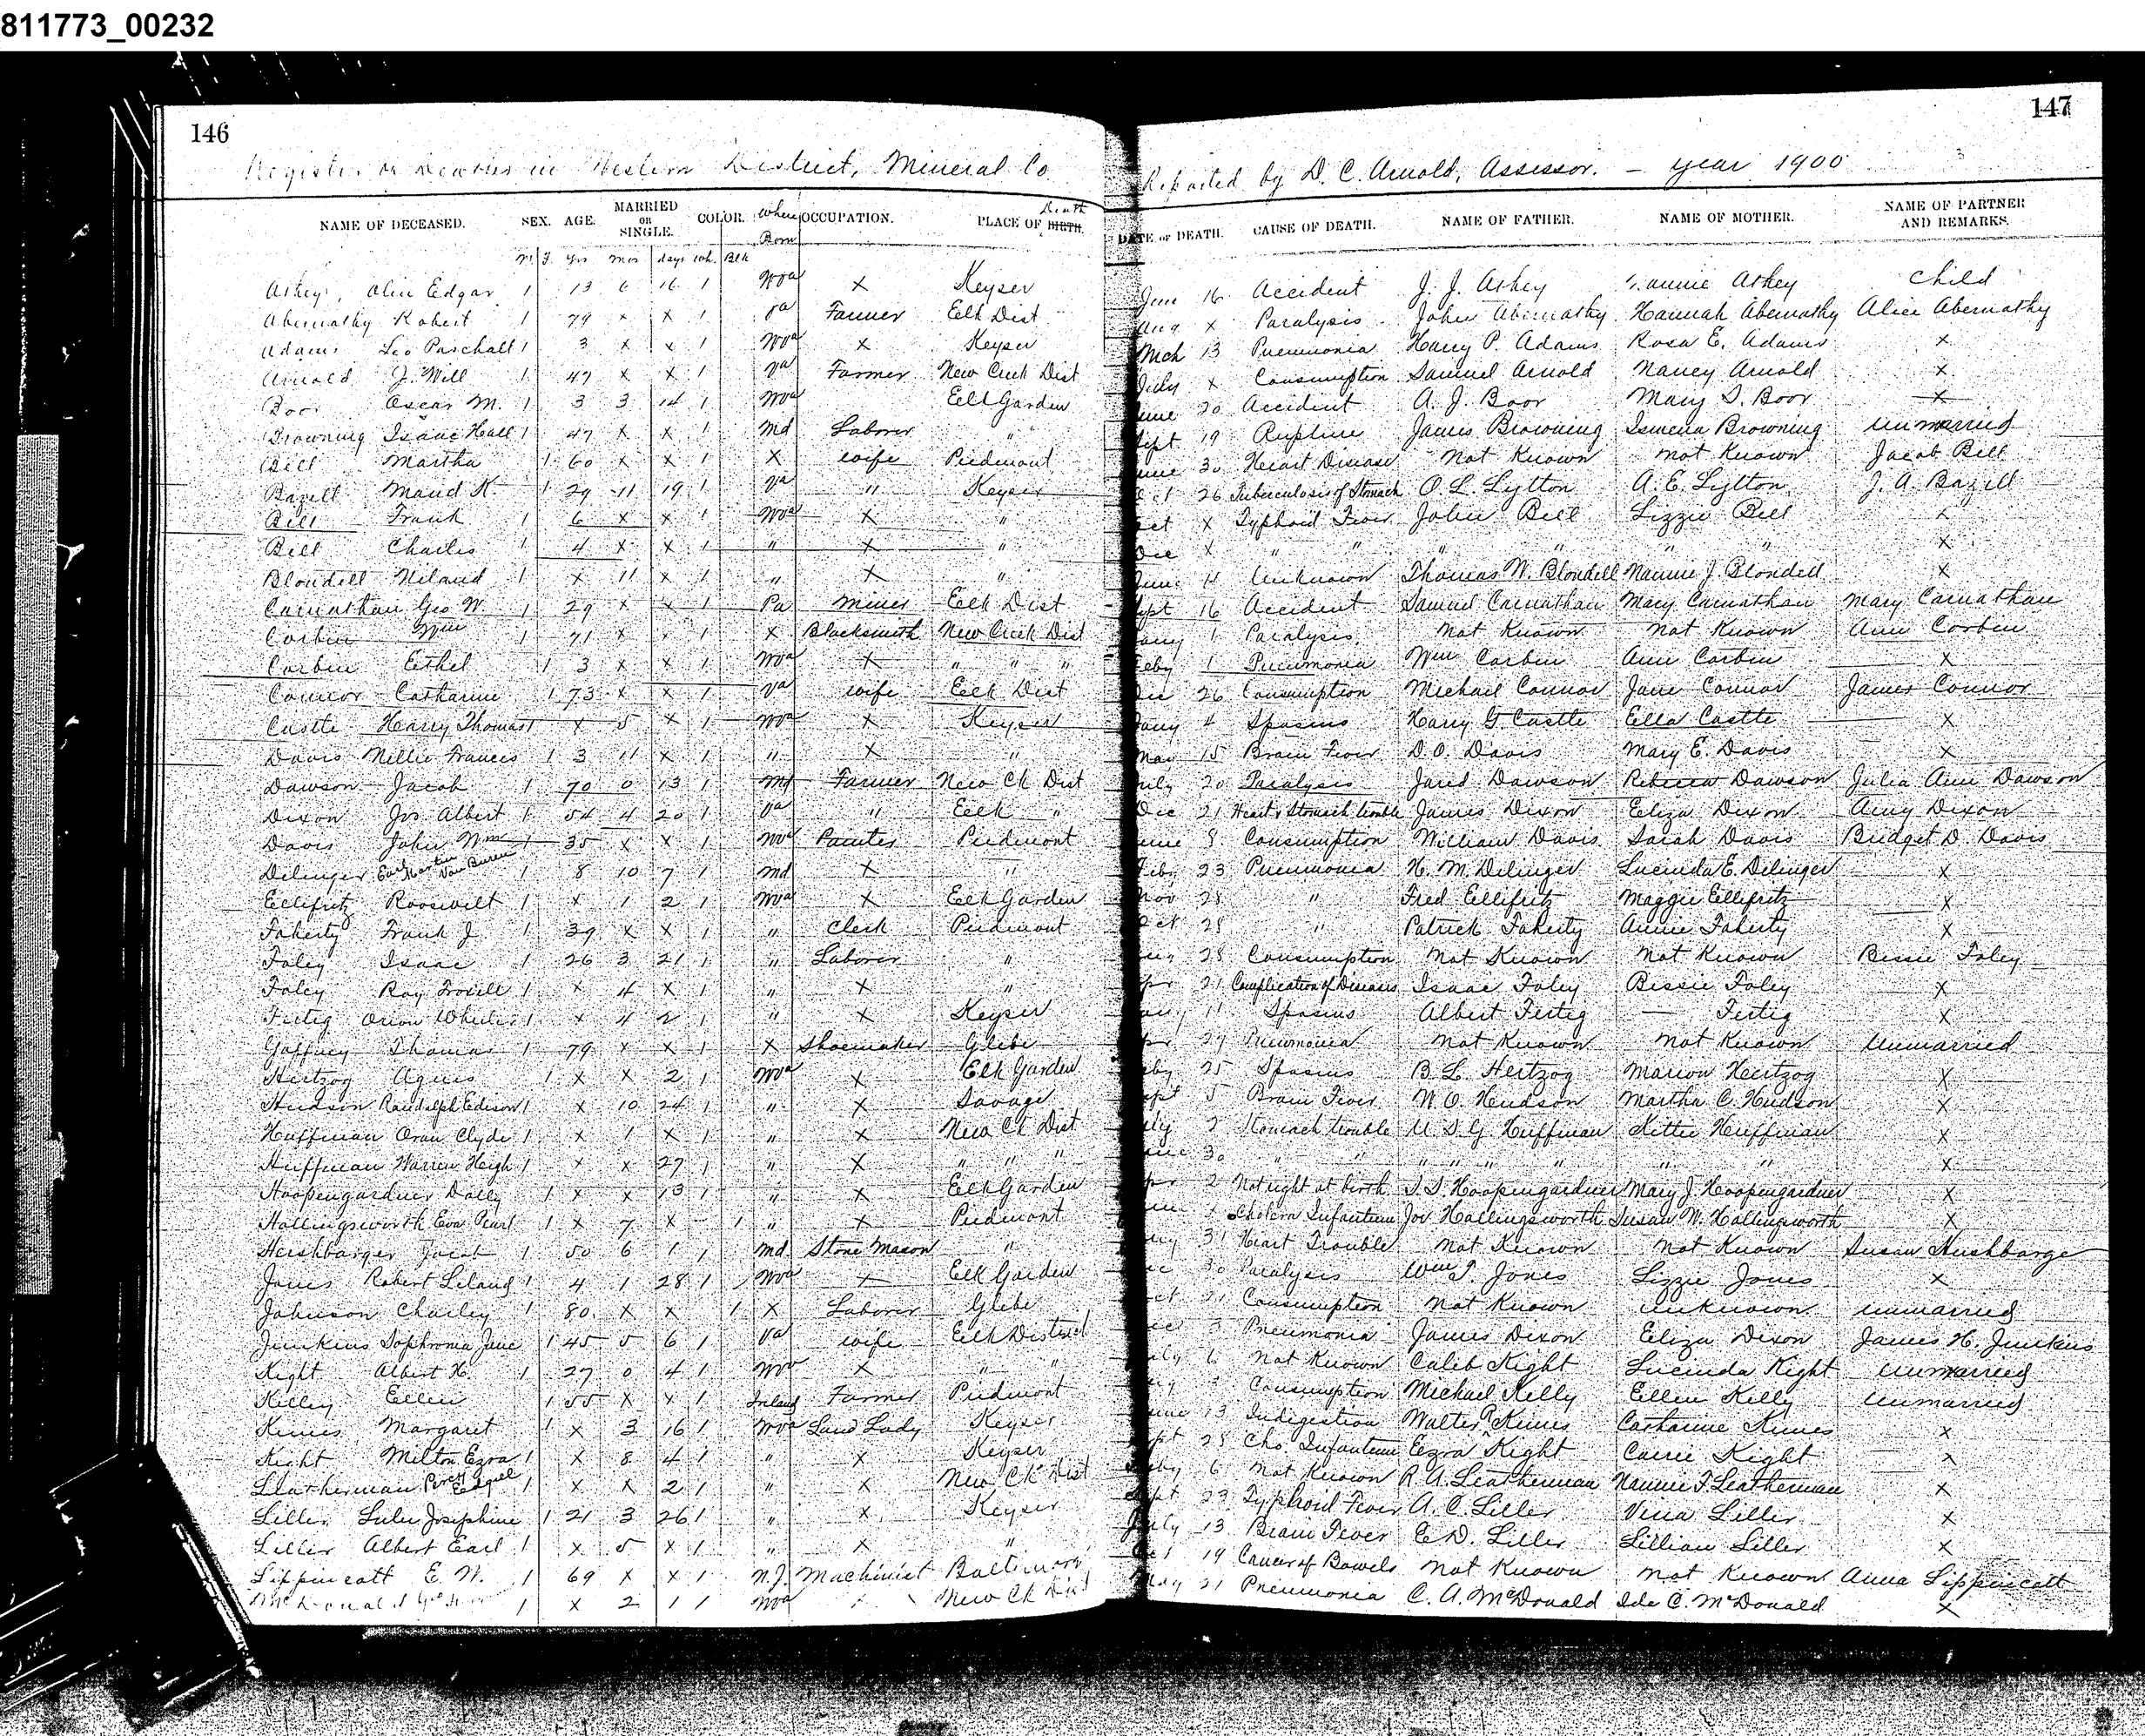 811773_00232
146
147
Register of Deaths in Western District, Mineral Co
Reported by D. C. Arnold, Assessor. — year 1900
NAME OF DECEASED. SEX. AGE. MARRIED OR SINGLE. COLOR. Where Born OCCUPATION. PLACE OF BIRTH. Death DATE OF DEATH. CAUSE OF DEATH. NAME OF FATHER. NAME OF MOTHER. NAME OF PARTNER AND REMARKS.
M F. yrs mos days wh. Blk
Edgar 1 13 6 16 1 Wva X Keyser June 16 Accident J. J. Child
Abernathy Robert 1 79 x x 1 Va Farmer Eelk Dist Aug x Paralysis John Abernathy Hannah Abernathy Alice Abernathy
Adams Leo Paschall 1 3 x x 1 Wva x Keyser Mch 13 Pneumonia Harry P. Adams Rosa E. Adams x
Arnold J. Will 1 47 x x 1 Va Farmer New Creek Dist July x Consumption Samuel Arnold Nancy Arnold x
Boor Oscar M. 1 3 3 14 1 Wva Eelk Garden June 20 Accident A. J. Boor Mary S. Boor x
Browning Isaac Hall 1 47 x x 1 Md Laborer " Sept 19 Rupture James Browning Ismena Browning unmarried
Bell Martha 1 60 x x 1 X wife Piedmont June 30 Heart Disease Not Known not Known Jacob Bell
Bazell Maud K. 1 29 11 19 1 Va " Keyser Oct 26 Tuberculosis of Stomach O. L. Lytton A. E. Lytton J. A. Bazell
Bell Frank 1 6 x x 1 Wva X " Oct x Typhoid Fever John Bell Lizzie Bell x
Bell Charles 1 4 x x 1 " X " Dec x " " " " " " x
Blondell Niland 1 x 11 x 1 " X " June 11 Unknown Thomas W. Blondell Nannie J. Blondell x
Carnathan Geo W. 1 29 x x 1 Pa miner Eelk Dist Sept 16 Accident Samuel Carnathan Mary Carnathan Mary Carnathan
Corbin Wm 1 71 x 1 X Blacksmith New Creek Dist Jany 1 Paralysis Not Known Not Known Ann Corbin
Corbin Eethel 1 3 x x 1 Wva X " " " Feby 1 Pneumonia Wm Corbin Ann Corbin x
Connor Catharine 1 73 x x 1 Va wife Eelk Dist Dec 26 Consumption Michael Connor Jane Connor James Connor
Castle Harry Thomas 1 x 5 x 1 Wva x Keyser Jany 4 Spasms Harry G. Castle Ella Castle x
Davis Nellie Frances 1 3 11 x 1 " X " May 15 Brain Fever D. O. Davis Mary E. Davis x
Dawson Jacob 1 70 0 13 1 Md Farmer New Ck Dist July 20 Paralysis Jared Dawson Rebecca Dawson Julia Ann Dawson
Dixon Jos. Albert 1 54 4 20 1 Va " Eelk " Dec 21 Heart & Stomach trouble James Dixon Eliza Dixon Amy Dixon
Davis John Wm 1 35 x x 1 Wva Painter Piedmont June 8 Consumption William Davis Sarah Davis Bridget D. Davis
Delinger Earl Martin Van Buren 1 8 10 7 1 Md X " Feby 23 Pneumonia H. M. Delinger Lucinda E. Delinger x
Eellifritz Roosevelt 1 x 1 2 1 Wva X Eelk Garden Nov 28 " Fred Eellifritz Maggie Eellifritz x
Faherty Frank J. 1 39 x x 1 " Clerk Piedmont Oct 28 " Patrick Faherty Annie Faherty x
Foley Isaac 1 26 3 21 1 " Laborer " 28 Consumption Not Known Not Known Bessie Foley
Foley Ray 1 x 4 x 1 " X " Apr 21 Complication of Diseases Isaac Foley Bessie Foley x
Fertig Orion Wheeler 1 x 4 2 1 " X Keyser 11 Spasms Albert Fertig — Fertig x
Gaffney Thomas 1 79 x x 1 X Shoemaker Glebe Apr 27 Pneumonia Not Known Not Known Unmarried
Hertzog Agnes 1 x x 2 1 Wva x Eelk Garden Feby 25 Spasms B. L. Hertzog Marion Hertzog x
Hudson Randolph Edison 1 x 10 24 1 " x Savage Sept 5 Brain Fever W. O. Hudson Martha C. Hudson x
Huffman Oran Clyde 1 x 1 x 1 " x New Ck Dist July 2 Stomach trouble U. S. G. Huffman Kittie Huffman x
Huffman Warren Heigh 1 x x 27 1 " X " " " June 30 " " " " " " " x
Hoopengardner Dolly 1 x x 13 1 " x Eelk Garden Apr 2 Not right at birth S. S. Hoopengardner Mary J. Hoopengardner x
Hollingsworth Eva Pearl 1 x 7 x - 1 " x Piedmont Cholera Infantum Jos. Hollingsworth Susan W. Hollingsworth x
Hershbarger Jacob 1 50 6 1 1 Md. Stone Mason " 31 Heart Trouble Not Known Not Known Susan Hershbarger
Jones Robert Leland 1 4 1 28 1 Wva x Eelk Garden 30 Paralysis Wm T. Jones Lizzie Jones x
Johnson Charley 1 80 x x 1 X Laborer Glebe Oct 21 Consumption Not Known Unknown unmarried
Junkins Sophronia Jane 1 45 5 6 1 Va wife Eelk District Dec 3 Pneumonia James Dixon Eliza Dixon James H. Junkins
Kight Albert H. 1 27 0 4 1 Wva X " " July 6 Not Known Caleb Kight Lucinda Kight unmarried
Kelley Eellen 1 55 x x 1 Ireland Farmer Piedmont Consumption Michael Kelly Eellen Kelly unmarried
Kimes Margaret 1 x 3 16 1 Wva Land Lady Keyser June 13 Indigestion Walter R Kimes Catharine Kimes x
Kight Milton Ezra 1 x 8 4 1 " x Keyser Sept 28 Cho. Infantum Ezra Kight Carrie Kight x
Leatherman 1 x x 2 1 " x New Ck Dist Feby 6 Not Known R. A. Leatherman Nannie F. Leatherman x
Liller Lulu Josephine 1 21 3 26 1 " x Keyser Sept 23 Typhoid Fever A. C. Liller Vina Liller x
Liller Albert Earl 1 x 5 x 1 " x " July 13 Brain Fever E. D. Liller Lillian Liller x
Lippincott E. W. 1 69 x x 1 N.J. Machinist Baltimore Oct 19 Cancer of Bowels Not Known Not Known Anna Lippincott
McDonald 1 x 2 1 1 Wva New Ck Dist May 21 Pneumonia C. A. McDonald Ida C. McDonald x